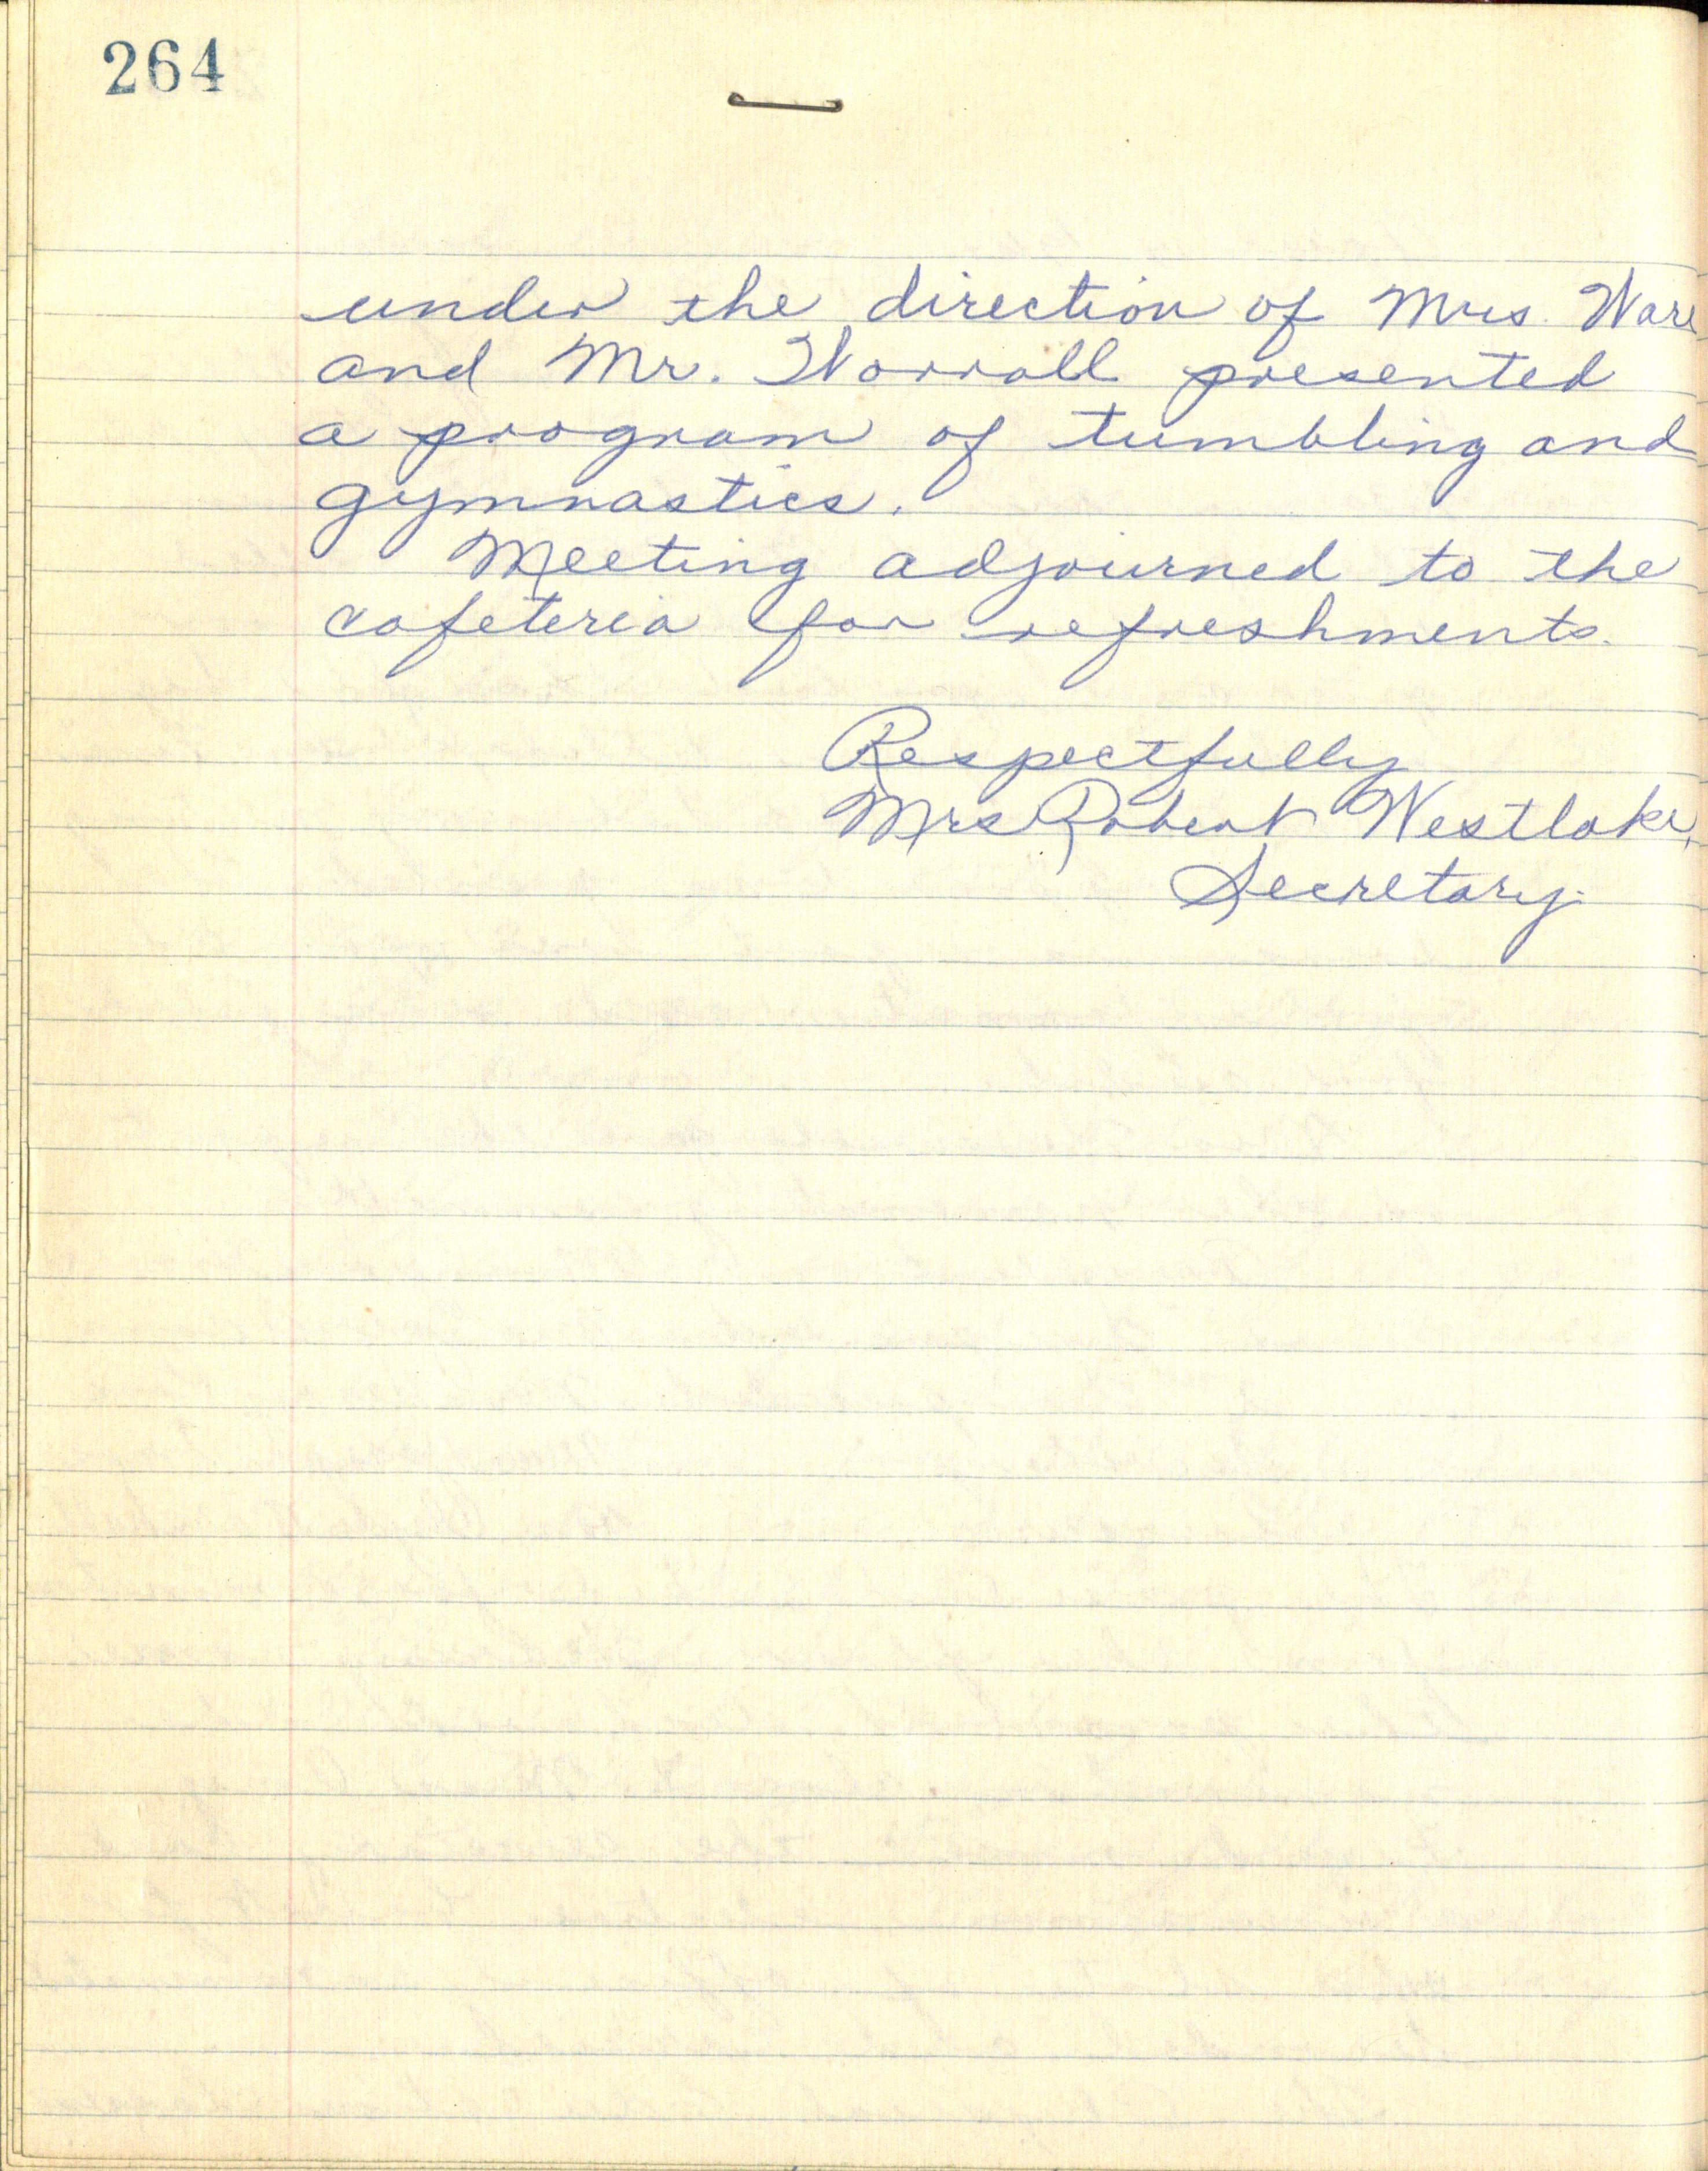 264
under the direction of Mrs. Ware
and Mr. Worrall presented
a program of tumbling and
gymnastics.
Meeting adjourned to the
cafeteria for refreshments.
Respectfully
Mrs Robert Westlake,
Secretary.